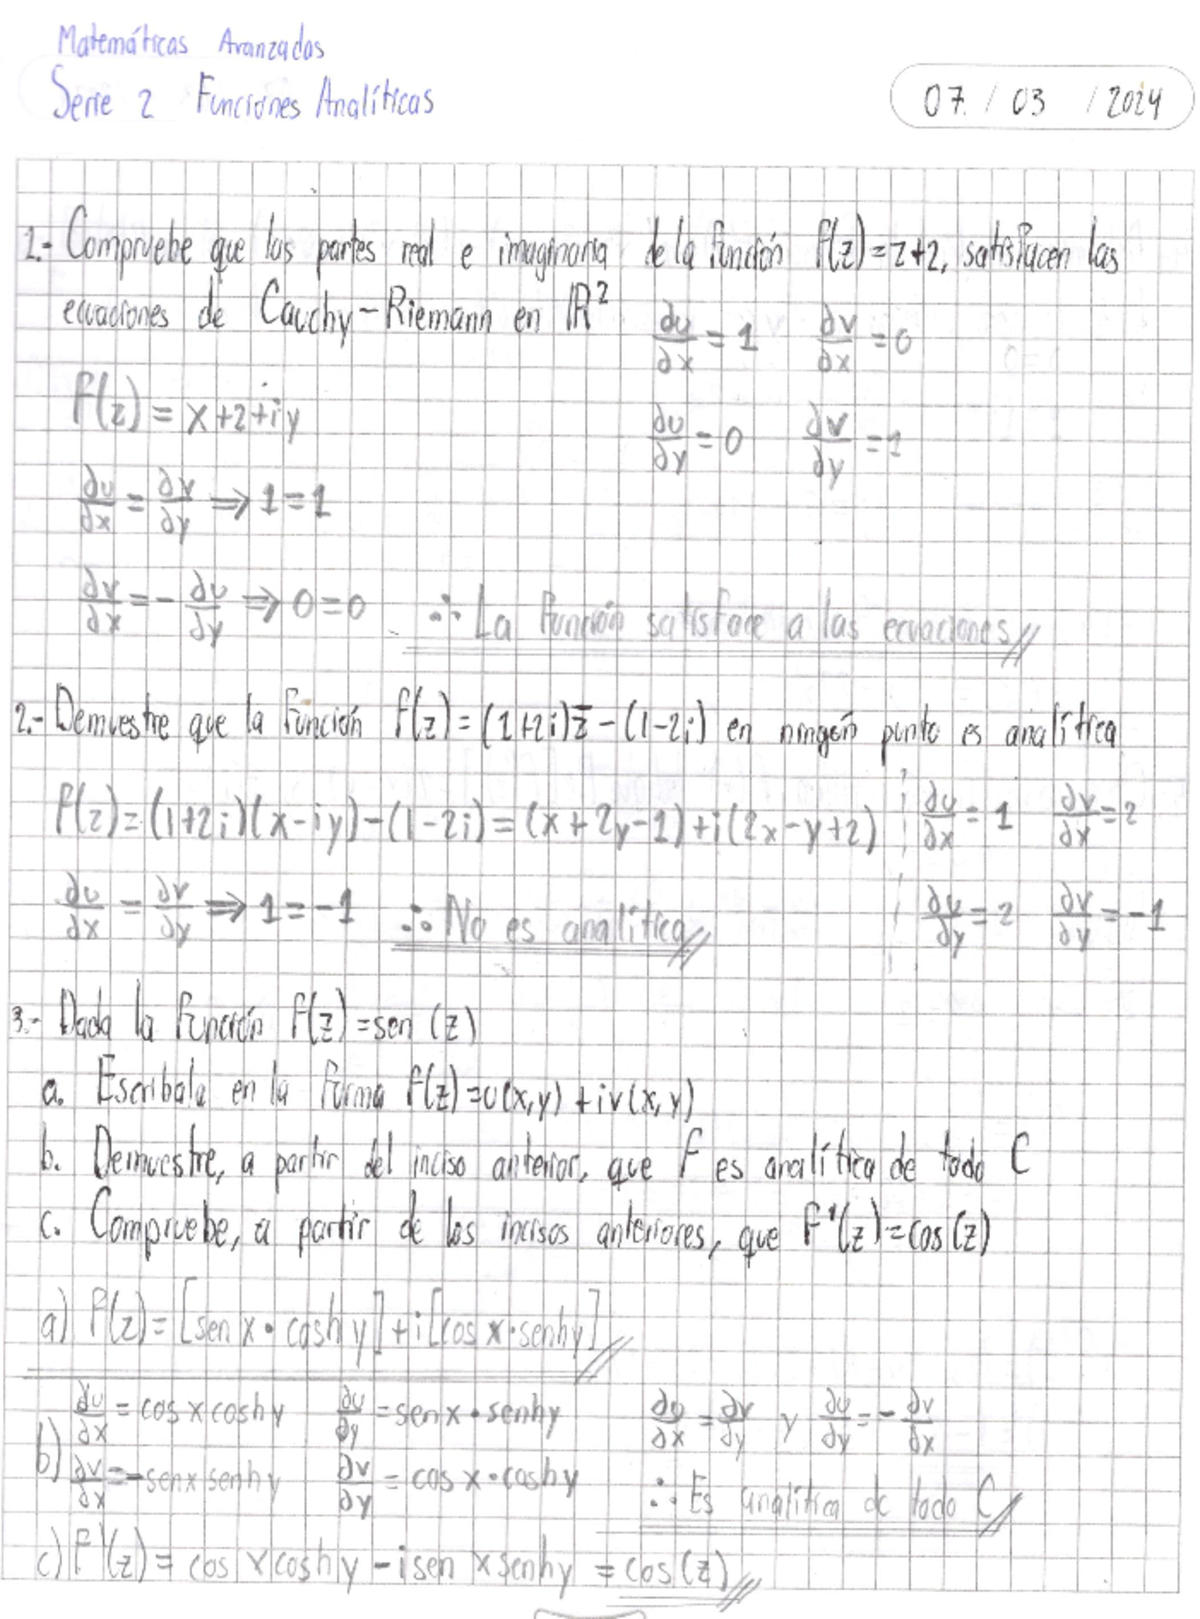 Matemáticas Avanzadas
Serie 2 Funciones Analíticas
07 / 03 / 2024
1.- Compruebe que las partes real e imaginaria de la función f(z)=z+2, satisfacen las
ecuaciones de Cauchy-Riemann en ℝ²
∂u/∂x = 1 ∂v/∂x = 0
f(z) = x+2+iy
∂u/∂y = 0 ∂v/∂y = 1
∂u/∂x = ∂v/∂y ⇒ 1=1
∂v/∂x = -∂u/∂y ⇒ 0=0 ∴ La función satisface a las ecuaciones
2.- Demuestre que la función f(z) = (1+2i)z̅ - (1-2i) en ningún punto es analítica
f(z) = (1+2i)(x-iy)-(1-2i) = (x+2y-1)+i(2x-y+2) ∂u/∂x = 1 ∂v/∂x = 2
∂u/∂x = ∂v/∂y ⇒ 1=-1 ∴ No es analítica ∂u/∂y = 2 ∂v/∂y = -1
3.- Dada la función f(z) = sen (z)
a. Escribala en la forma f(z)=u(x,y) + iv(x,y)
b. Demuestre, a partir del inciso anterior, que f es analítica de todo C
c. Compruebe, a partir de los incisos anteriores, que f'(z)=cos(z)
a) f(z) = [sen x • cosh y] + i [cos x • senhy]
∂u/∂x = cos x cosh y ∂u/∂y = sen x • senhy ∂u/∂x = ∂v/∂y y ∂u/∂y = -∂v/∂x
b) ∂v/∂x = -senx senhy ∂v/∂y = cos x • coshy ∴ Es analítica de todo C
c) f'(z) = cos x cosh y - i sen x senhy = cos(z)